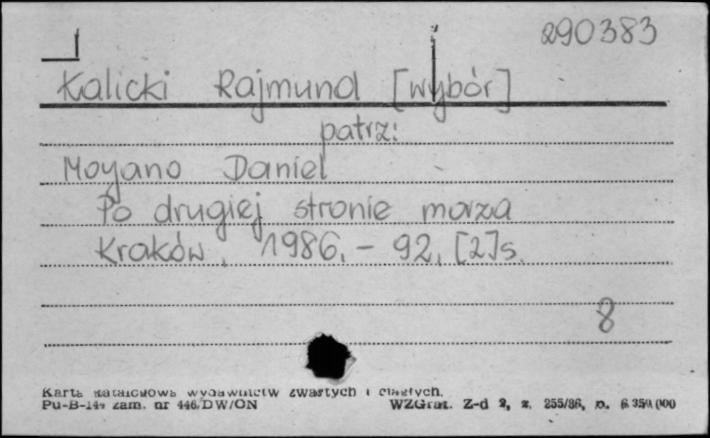 290383
Kalicki Rajmund [wybór]
patrz:
Moyano Daniel
Po drugiej stronie morza
Kraków, 1986. - 92, [2] s.
8
Karta katalogowa wydawnictw zwartych i ciągłych.
Pu-B-144 zam. nr 446/DW/ON WZGraf. Z-d 2, z. 255/86, n.